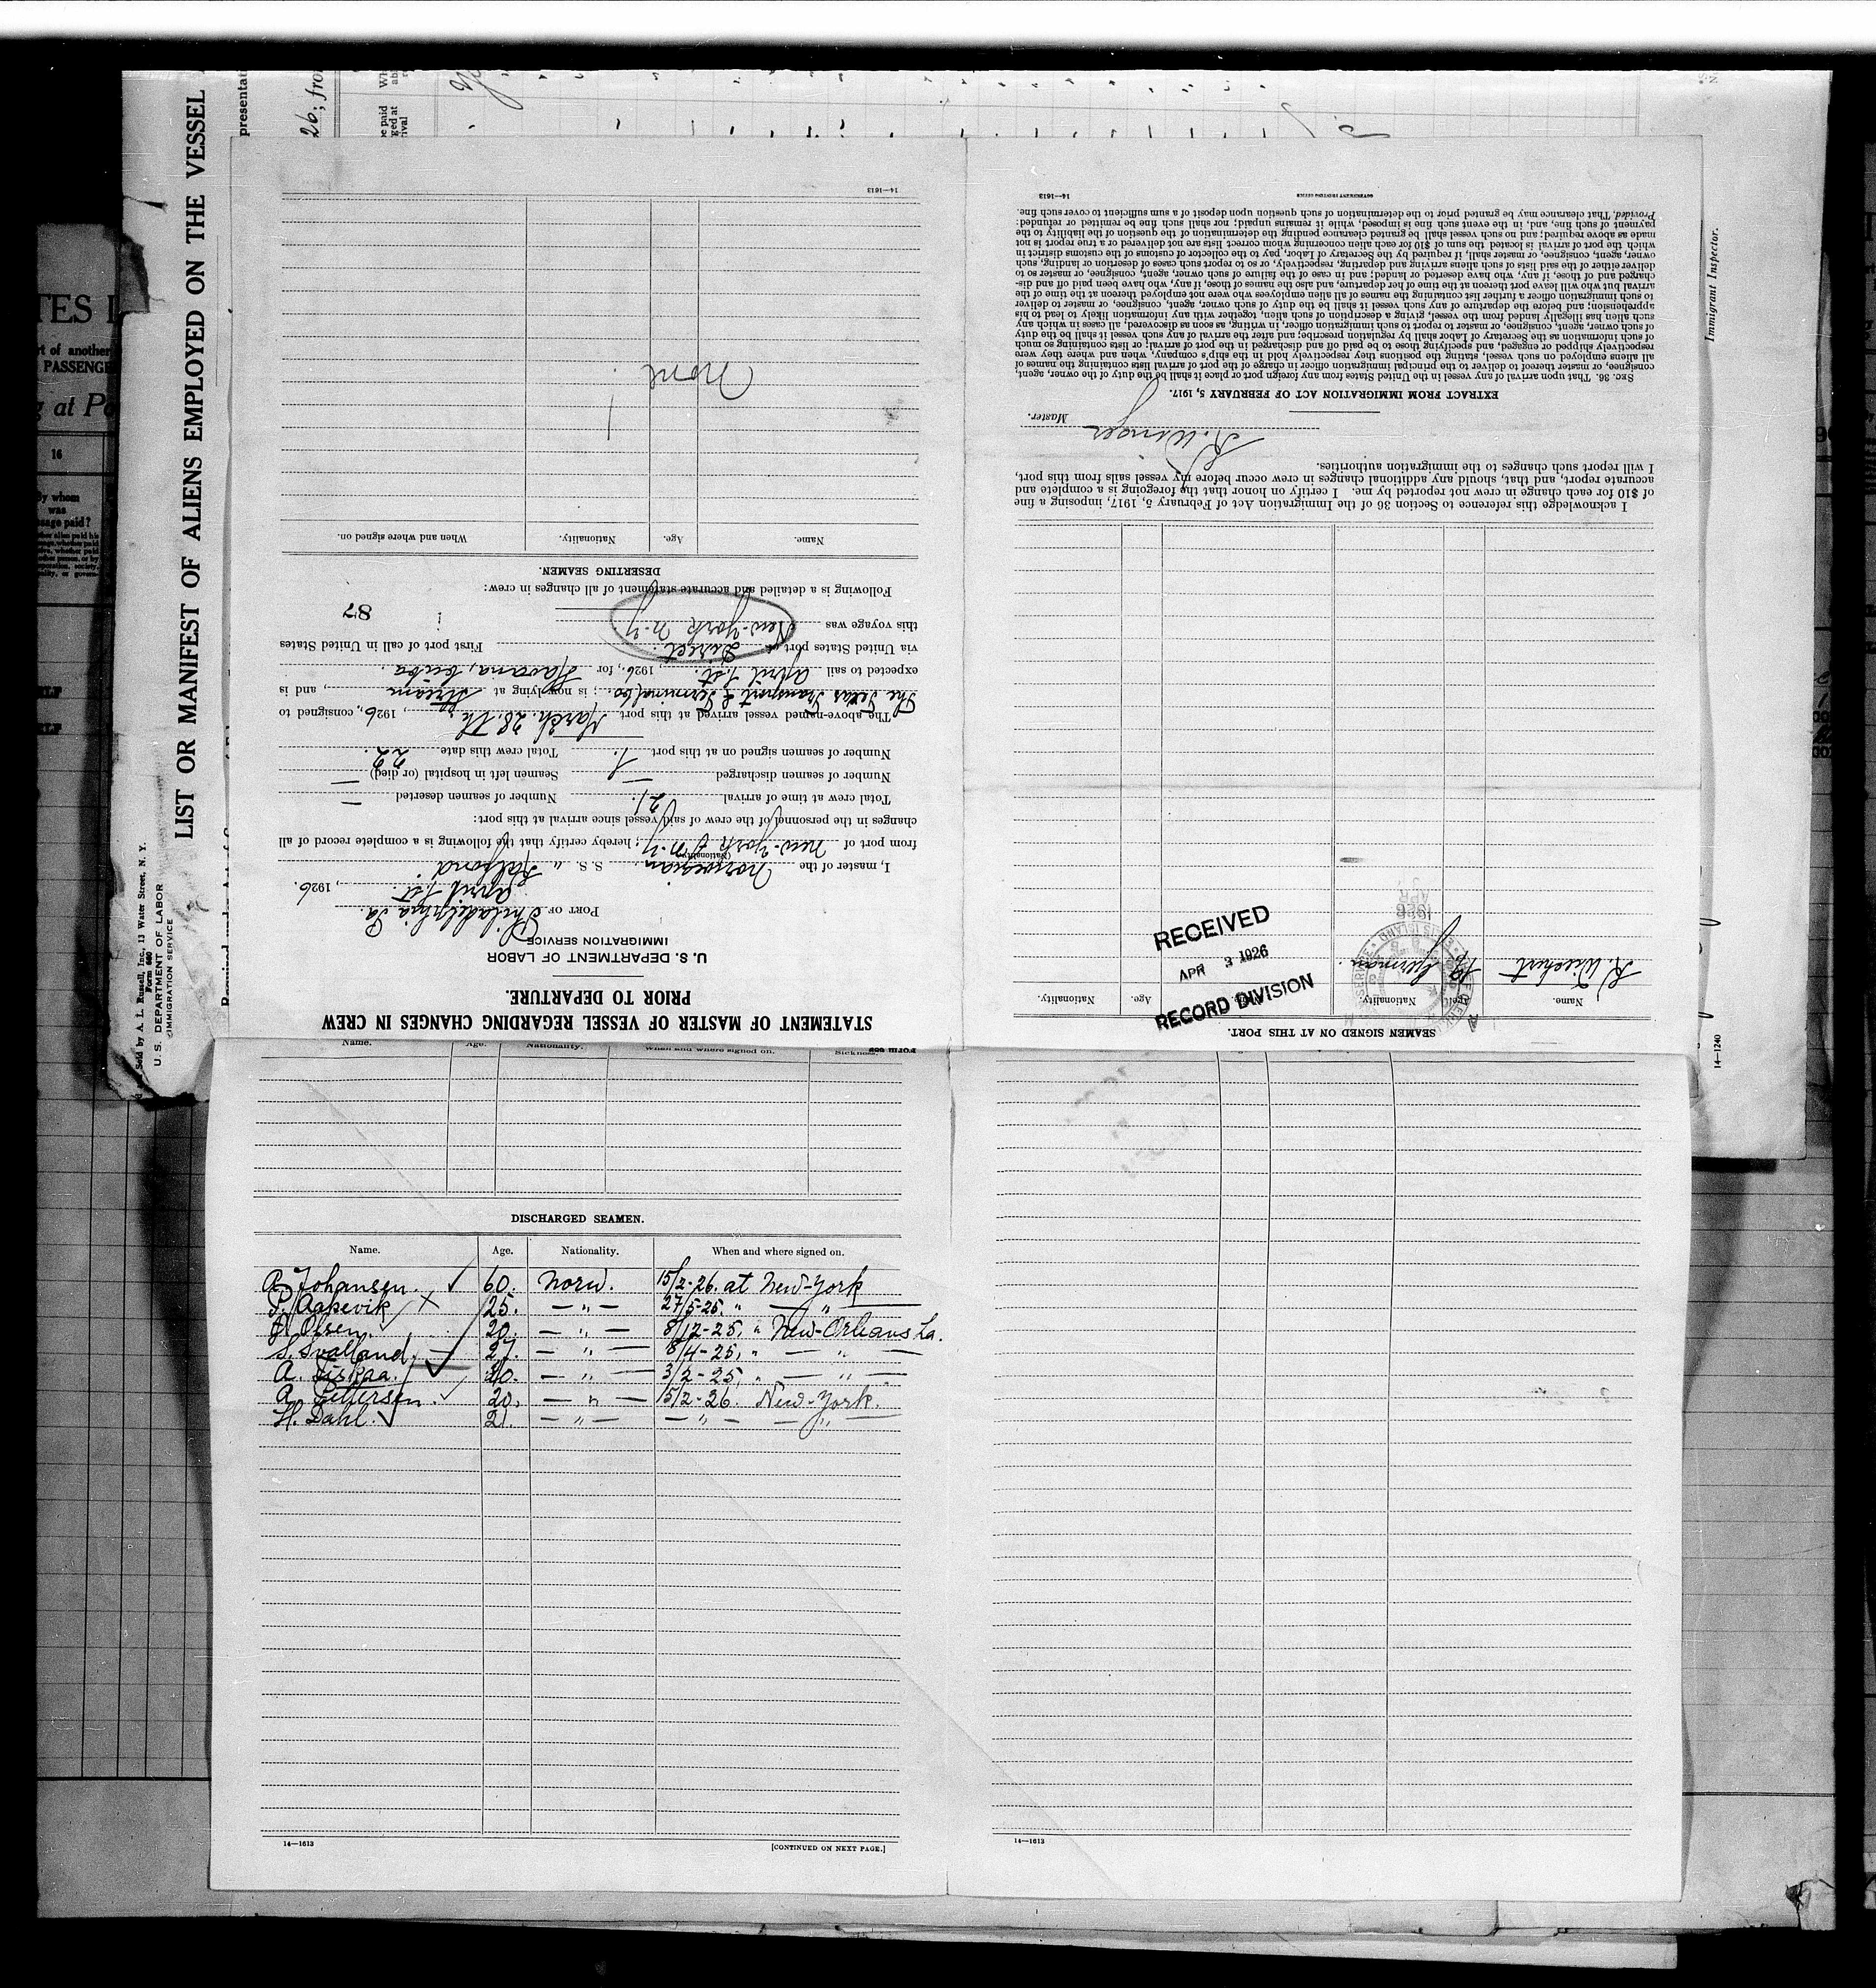 LIST OR MANIFEST OF ALIENS EMPLOYED ON THE VESSEL
Sold by A. L. Russell, Inc., 13 Water Street, N. Y.
Form 680
U. S. DEPARTMENT OF LABOR
IMMIGRATION SERVICE
presentat
26; from
Immigrant Inspector.
14—1240
TES I
rt of another
PASSENG
g at Po
16
By whom
was
sage paid?
STATEMENT OF MASTER OF VESSEL REGARDING CHANGES IN CREW
PRIOR TO DEPARTURE.
U. S. DEPARTMENT OF LABOR
IMMIGRATION SERVICE
PORT OF Philadelphia Pa.
April 1st., 1926.
I, master of the Norwegian S. S. "
(Nationality)
from port of New-York N-Y; hereby certify that the following is a complete record of all
changes in the personnel of the crew of said vessel since arrival at this port:
Total crew at time of arrival 21. Number of seamen deserted —
Number of seamen discharged — Seamen left in hospital (or died) —
Number of seamen signed on at this port 1. Total crew this date 22.
The above-named vessel arrived at this port March 28.th, 1926, consigned to
The Texas Transport & Terminal Co.; is now lying at Stream, and is
expected to sail April 1st., 1926, for Havana, Cuba.
via United States port Direct. First port of call in United States
this voyage was New-York N-Y 87
Following is a detailed and accurate statement of all changes in crew:
DESERTING SEAMEN.
Name. Age. Nationality. When and where signed on.
None
14—1613
SEAMEN SIGNED ON AT THIS PORT.
Name. Age. Nationality. Name. Age. Nationality.
K. Weichert 19 German.
RECEIVED
APR 2 1926
RECORD DIVISION
I acknowledge this reference to Section 36 of the Immigration Act of February 5, 1917, imposing a fine
of $10 for each change in crew not reported by me. I certify on honor that the foregoing is a complete and
accurate report, and that, should any additional changes in crew occur before my vessel sails from this port,
I will report such changes to the immigration authorities.
Master.
EXTRACT FROM IMMIGRATION ACT OF FEBRUARY 5, 1917.
SEC. 36. That upon arrival of any vessel in the United States from any foreign port or place it shall be the duty of the owner, agent,
consignee, or master thereof to deliver to the principal immigration officer in charge of the port of arrival lists containing the names of
all aliens employed on such vessel, stating the positions they respectively hold in the ship's company, when and where they were
respectively shipped or engaged, and specifying those to be paid off and discharged in the port of arrival; or lists containing so much
of such information as the Secretary of Labor shall by regulation prescribe; and after the arrival of any such vessel it shall be the duty
of such owner, agent, consignee, or master to report to such immigration officer, in writing, as soon as discovered, all cases in which any
such alien has illegally landed from the vessel, giving a description of such alien, together with any information likely to lead to his
apprehension; and before the departure of any such vessel it shall be the duty of such owner, agent, consignee, or master to deliver
to such immigration officer a further list containing the names of all alien employees who were not employed thereon at the time of the
arrival but who will leave port thereon at the time of her departure, and also the names of those, if any, who have been paid off and dis-
charged and of those, if any, who have deserted or landed; and in case of the failure of such owner, agent, consignee, or master so to
deliver either of the said lists of such aliens arriving and departing, respectively, or so to report such cases of desertion or landing, such
owner, agent, consignee, or master shall, if required by the Secretary of Labor, pay to the collector of customs of the customs district in
which the port of arrival is located the sum of $10 for each alien concerning whom correct lists are not delivered or a true report is not
made as above required; and no such vessel shall be granted clearance pending the determination of the question of the liability to the
payment of such fine, and, in the event such fine is imposed, while it remains unpaid; nor shall such fine be remitted or refunded:
Provided, That clearance may be granted prior to the determination of such question upon deposit of a sum sufficient to cover such fine.
14—1613
GOVERNMENT PRINTING OFFICE
Name. Age. Nationality. When and where signed on. Sickness.
DISCHARGED SEAMEN.
Name. Age. Nationality. When and where signed on.
A. Johansen. 60. Norw. 15/2-26. at New-York
P. Aakevik 25. — " — 27/5-25. " — " —
Olsen 20. — " — 8/12-25. " New-Orleans La.
S. Svalland. 27. — " — 8/4-25, " — " —
A. Fiskaa. 40. — " — 3/2-25, " — " —
A. Pettersen. 20. — " — 15/2-26. New-York.
H. Dahl. 21. — " — — " — — " —
14—1613
[CONTINUED ON NEXT PAGE.]
14—1613